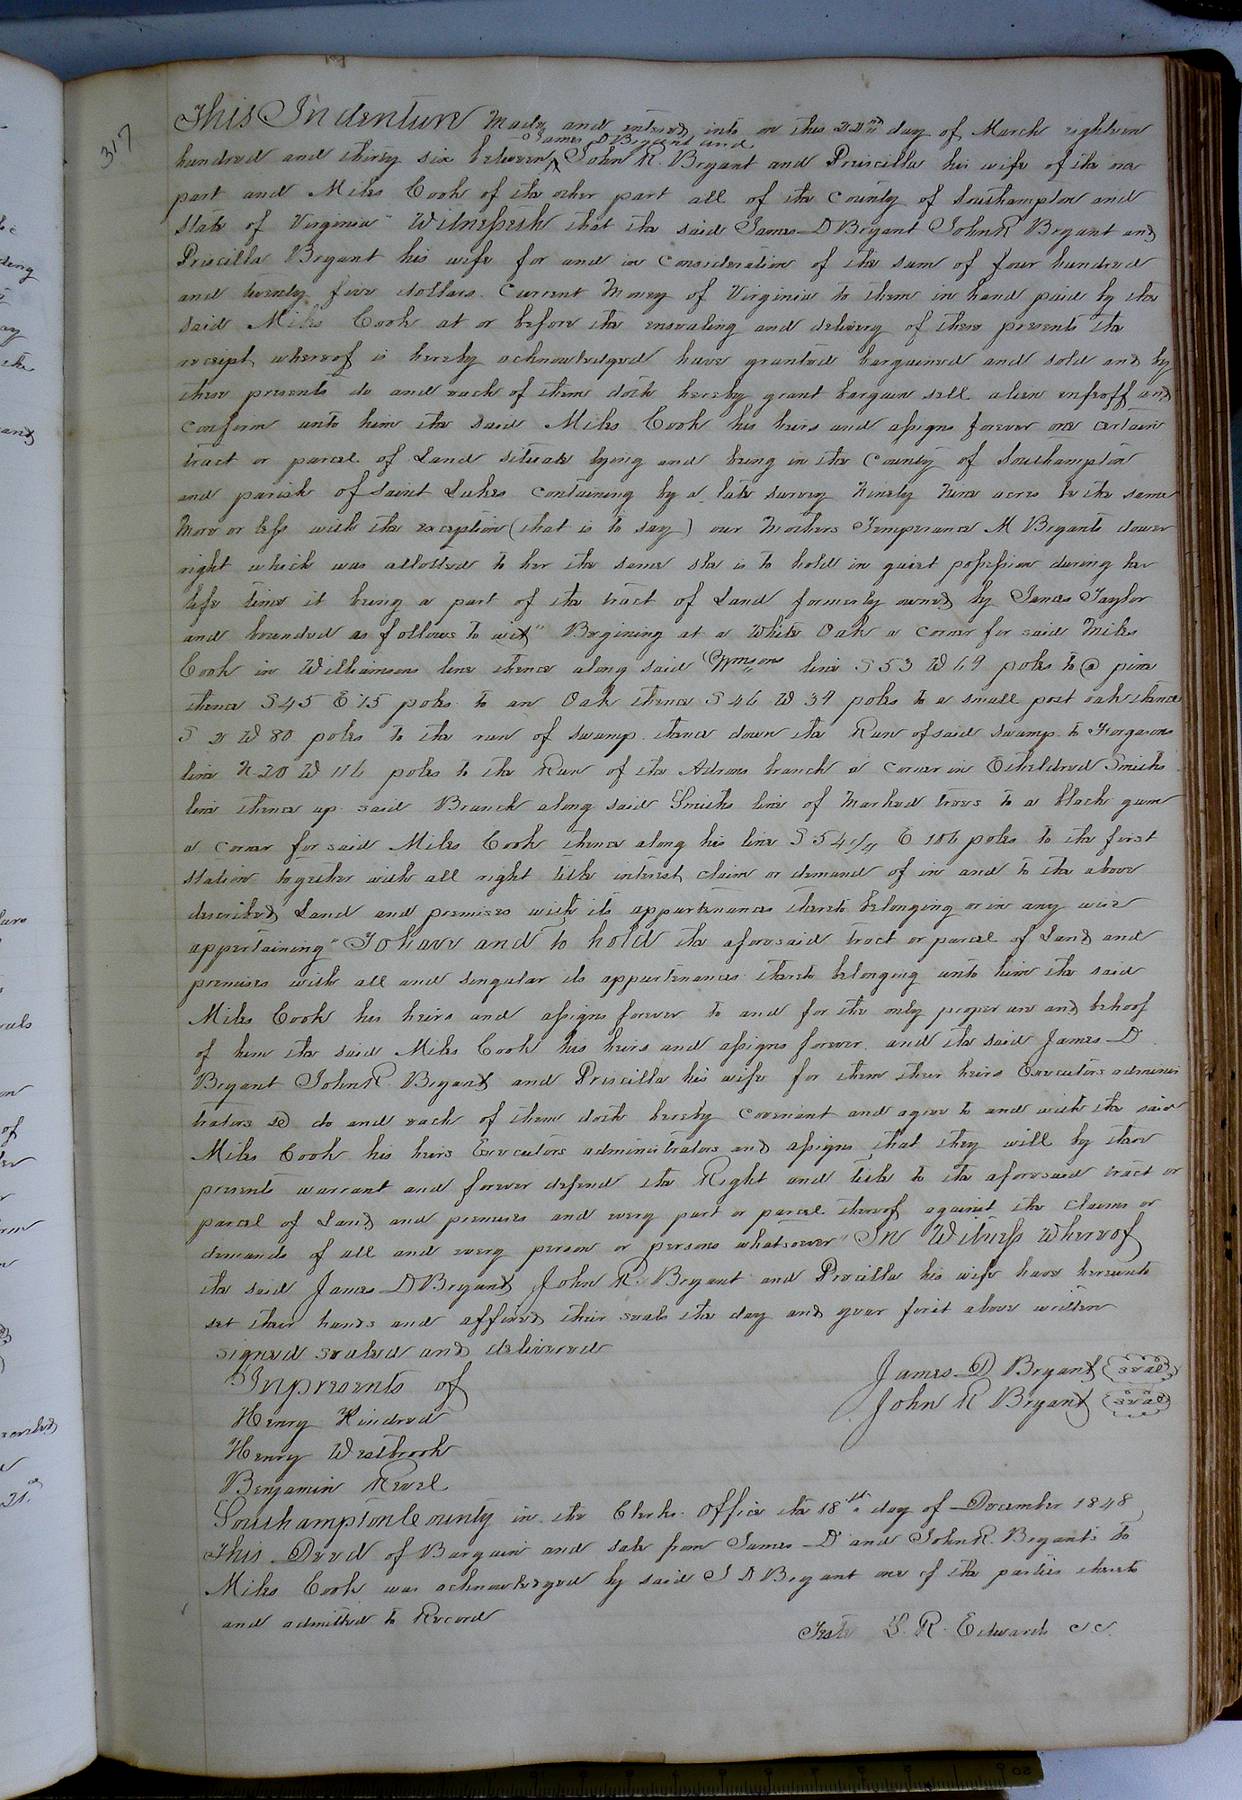 317
This Indenture Made and entered into on this 22nd day of March eighteen
James D Bryant and
hundred and thirty six between John R. Bryant and Priscilla his wife of the one
part and Miles Cook of the other part all of the County of Southampton and
State of Virginia Witnesseth that the said James D Bryant John R Bryant and
Priscilla Bryant his wife for and in Consideration of the sum of four hundred
and twenty five dollars Current Money of Virginia to them in hand paid by the
said Miles Cook at or before the ensealing and delivery of these presents the
receipt whereof is hereby acknowledged have granted bargained and sold and by
these presents do and each of them doth hereby grant bargain sell alien enfeoff and
Confirm unto him the said Miles Cook his heirs and assigns forever one certain
tract or parcel of Land situate lying and being in the County of Southampton
and parish of Saint Lukes Containing by a late survey Ninety Nine acres be the same
More or less with the exception (that is to say) our Mothers Temperance M Bryants dower
right which was allotted to her the same she is to hold in quiet possession during her
life time it being a part of the tract of Land formerly owned by James Taylor
and bounded as follows to wit" Begining at a White Oak a corner for said Miles
Cook in Williamsons line thence along said Wmsons line S 53 W 69 poles to a pine
thence S 45 E 15 poles to an Oak thence S 46 W 34 poles to a small post oak thence
S 2 W 80 poles to the run of swamp thence down the Run of said swamp to Forgasons
line N 20 W 116 poles to the Run of the Adams branch a Corner in Etheldred Smiths
line thence up said Branch along said Smiths line of Marked trees to a black gum
a Corner for said Miles Cook thence along his line S 54 1/4 E 106 poles to the first
Station together with all right title interest claim or demand of in and to the above
described Land and premises with its appurtenances thereto belonging or in any wise
appertaining" To have and to hold the aforesaid tract or parcel of Land and
premises with all and singular its appurtenances thereto belonging unto him the said
Miles Cook his heirs and assigns forever to and for the only proper use and behoof
of him the said Miles Cook his heirs and assigns forever and the said James D
Bryant John R Bryant and Priscilla his wife for them their heirs Executors adminis
trators &c do and each of them doth hereby Covenant and agree to and with the said
Miles Cook his heirs Executors administrators and assigns that they will by these
presents warrant and forever defend the Right and title to the aforesaid tract or
parcel of Land and premises and every part or parcel thereof against the Claims or
demands of all and every person or persons whatsoever" In Witness Whereof
the said James D Bryant John R Bryant and Precilla his wife have hereunto
set their hands and affixed their seals the day and year first above written
signed sealed and delivered
In presents of
James D Bryant (seal)
John R Bryant (seal)
Henry Kindred
Henry Westbrook
Benjamin Revel
Southampton County in the Clerks Office the 18th day of December 1848
This Deed of Bargain and sale from James D and John R. Bryants to
Miles Cook was acknowledged by said J D Bryant one of the parties thereto
and admitted to Record
Teste L. R. Edwards CC